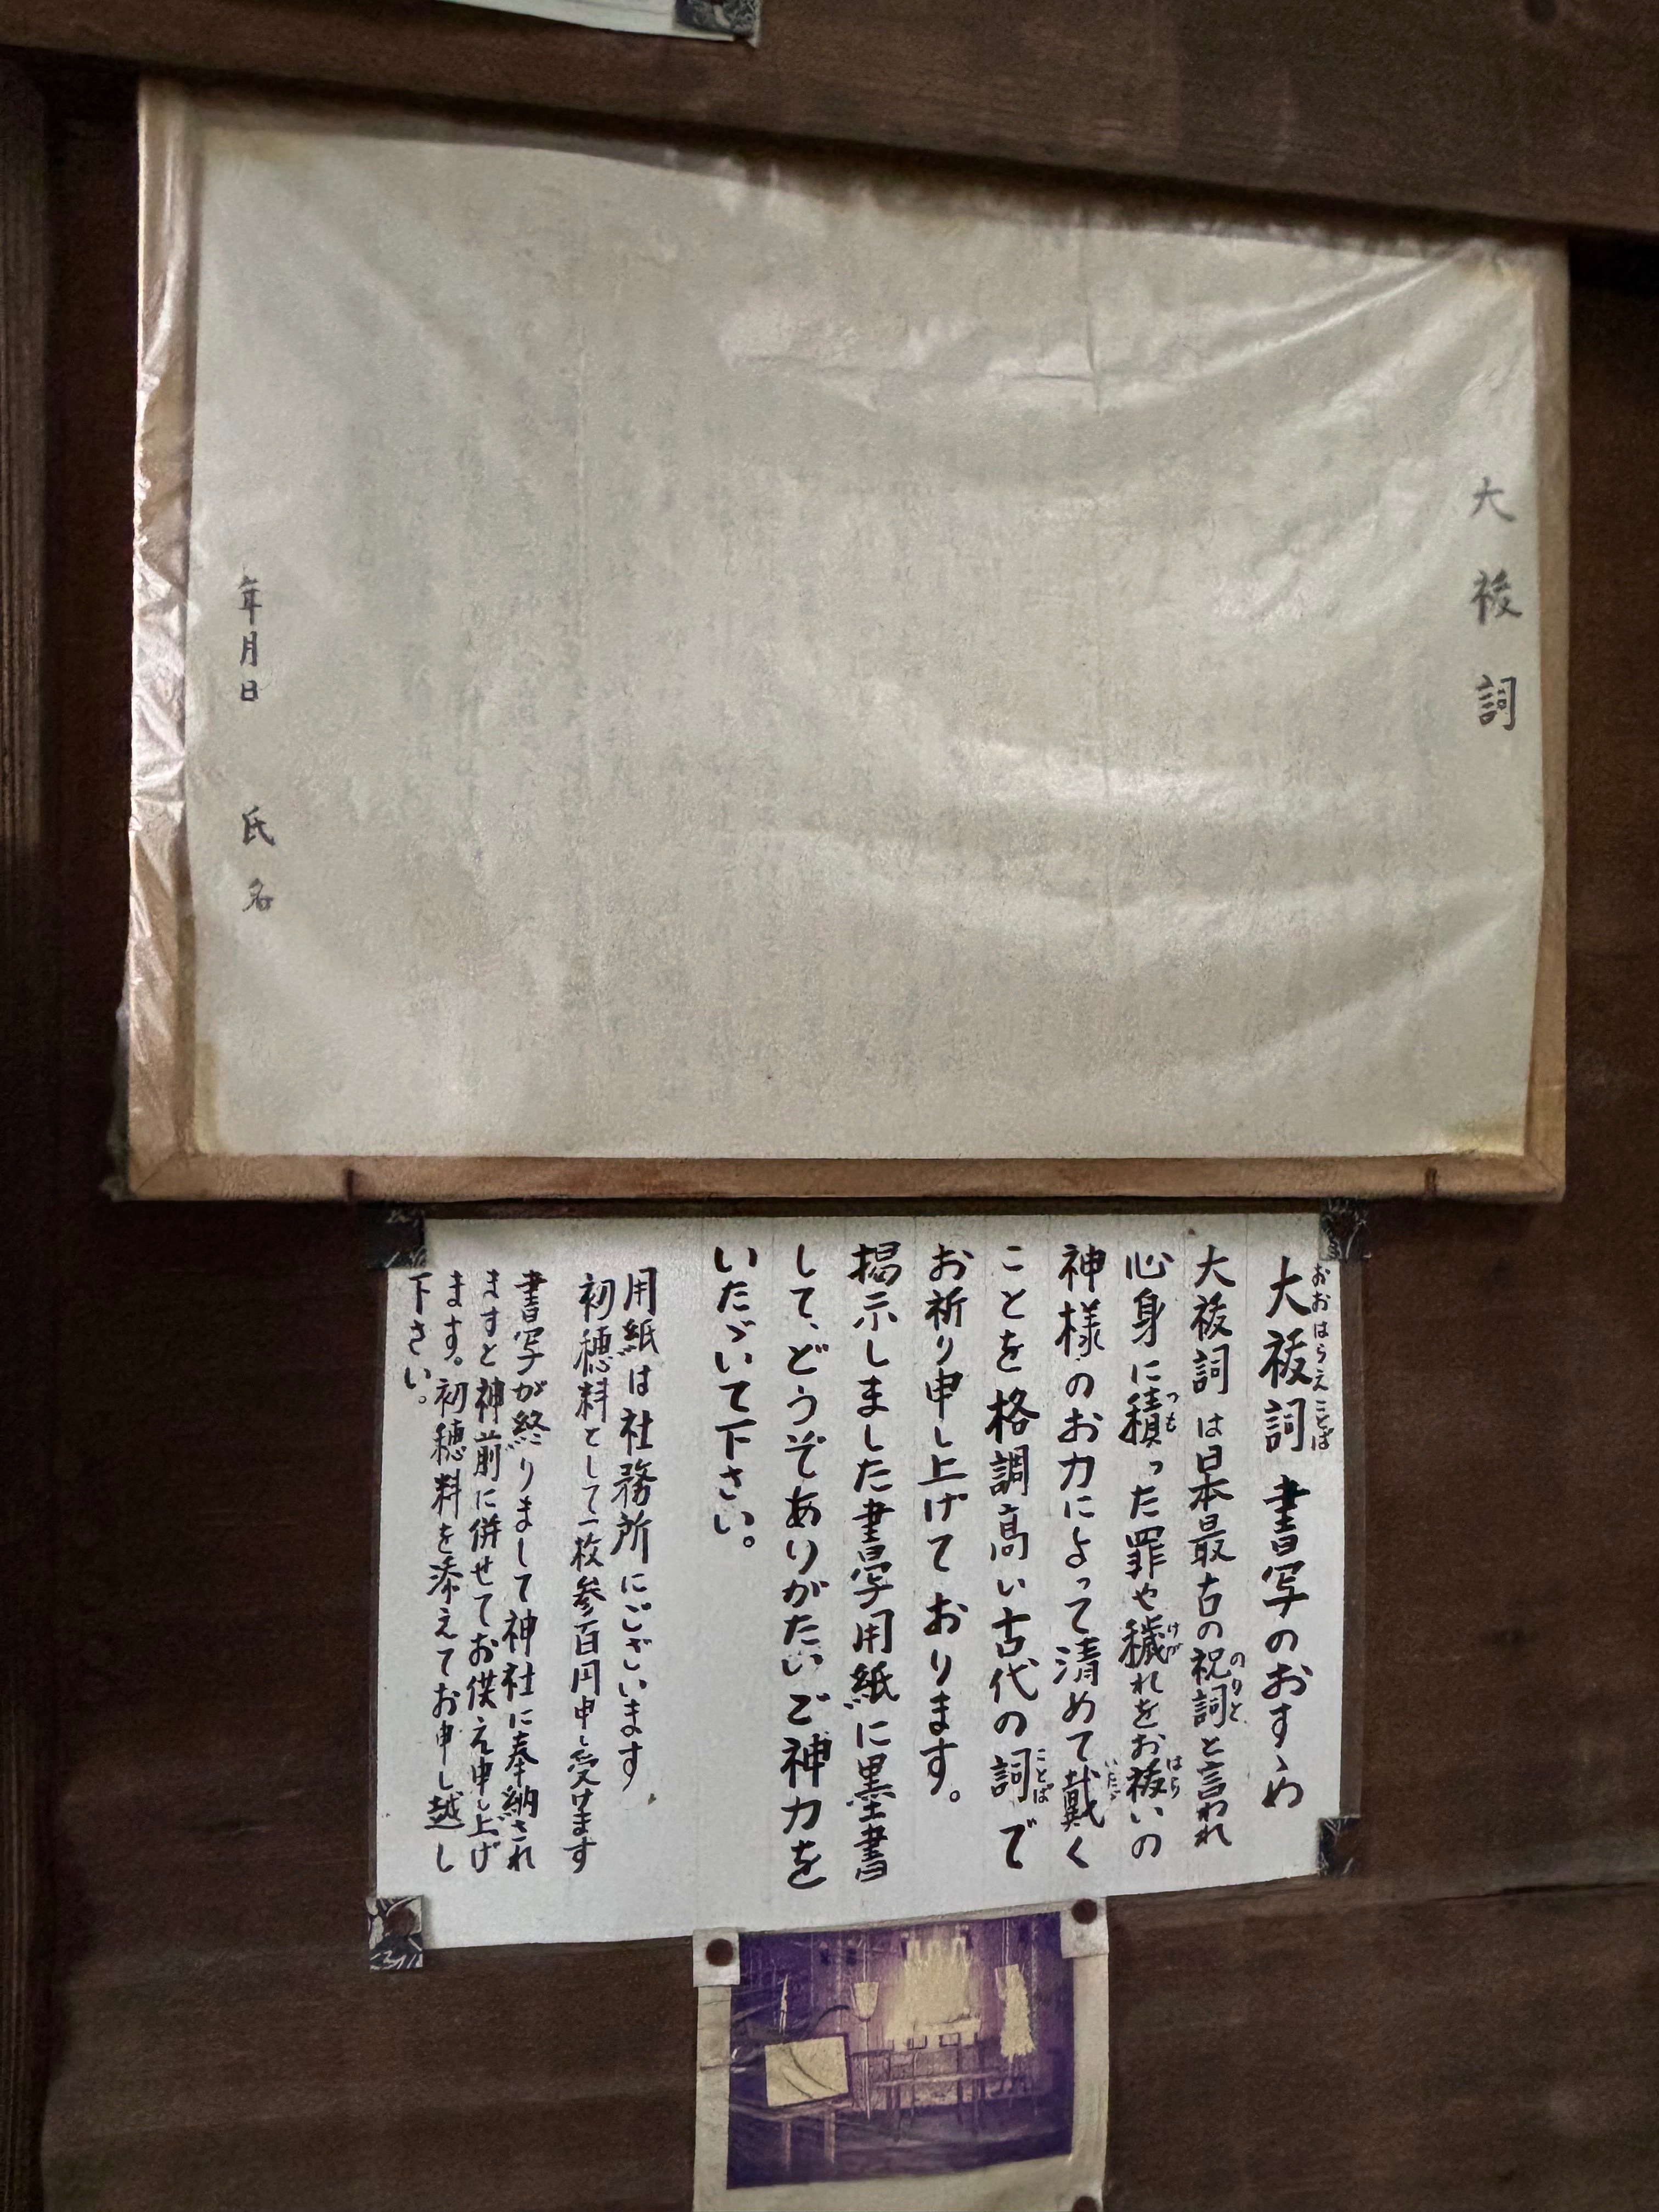 大祓詞
年月日 氏名
大祓詞 書写のおすゝめ
おおはらえことば
大祓詞は日本最古の祝詞と言われ
のりと
心身に積った罪や穢れをお祓いの
つも けが はら
神様のお力によって清めて戴く
いただ
ことを格調高い古代の詞で
ことば
お祈り申し上げております。
掲示しました書写用紙に墨書
して、どうぞありがたいご神力を
いたゞいて下さい。
用紙は社務所にございます
初穂料として一枚参百円申し受けます
書写が終りまして神社に奉納され
ますと神前に併せてお供え申し上げ
ます。初穂料を添えてお申し越し
下さい。